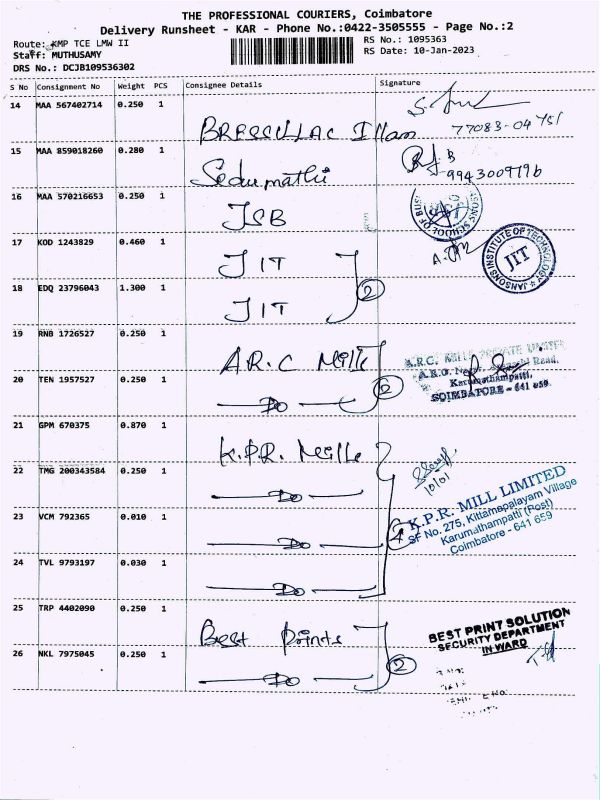 THE PROFESSIONAL COURIERS, Coimbatore
Delivery Runsheet - KAR - Phone No.:0422-3505555 - Page No.:2
Route: KMP TCE LMW II
RS No.: 1095363
Staff: MUTHUSAMY
RS Date: 10-Jan-2023
DRS No.: DCJB109536302
S No Consignment No Weight PCS Consignee Details Signature
14 MAA 567402714 0.250 1
77083-04
15 MAA 859018260 0.280 1 Sedumathi
9943009796
16 MAA 570216653 0.250 1 JSB
SCHOOL OF BUSI
17 KOD 1243829 0.460 1 JIT
JANSONS INSTITUTE OF TECHNOLOGY
JIT
18 EDQ 23796043 1.300 1 JIT
2
19 RNB 1726527 0.250 1 A.R.C Mills
A.R.C. MILLS PRIVATE LIMITED
Road,
20 TEN 1957527 0.250 1 Do
2
Karumathampatti,
COIMBATORE - 641 659
21 GPM 670375 0.870 1 K.P.R. Mills
10/01
22 TMG 200343584 0.250 1 Do
K.P.R. MILL LIMITED
SF No. 275, Kittampalayam Village
Karumathampatti (Post)
Coimbatore - 641 659
23 VCM 792365 0.010 1 Do
4
24 TVL 9793197 0.030 1 Do
25 TRP 4402090 0.250 1 Best Points
BEST PRINT SOLUTION
SECURITY DEPARTMENT
INWARD
26 NKL 7975045 0.250 1 Do
2